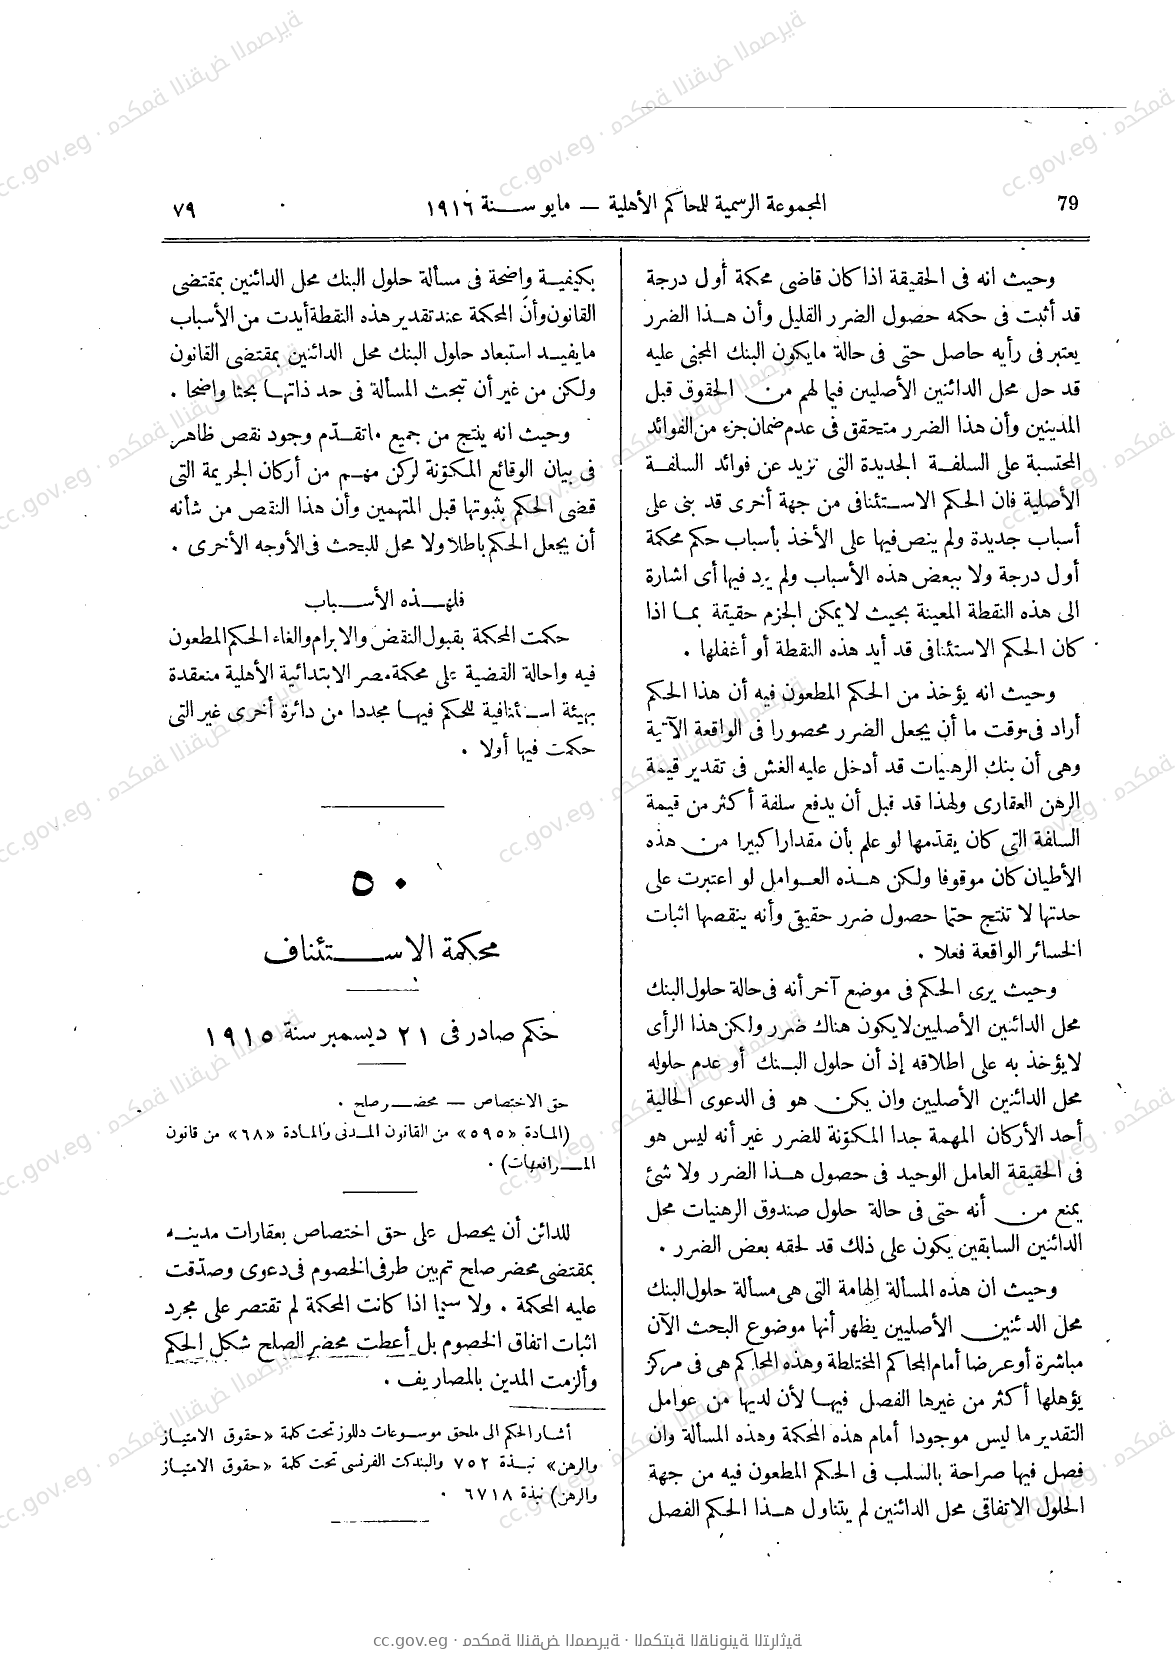 79
المجموعة الرسمية للمحاكم الأهلية — مايو سنة ١٩١٦
٧٩
وحيث انه فى الحقيقة اذا كان قاضى محكمة أول درجة
قد أثبت فى حكمه حصول الضرر القليل وأن هذا الضرر
يعتبر فى رأيه حاصل حتى فى حالة ما يكون البنك المجنى عليه
قد حل محل الدائنين الأصليين فيما لهم من الحقوق قبل
المدينين وأن هذا الضرر متحقق فى عدم ضمان جزء من الفوائد
المحتسبة على السلفة الجديدة التى تزيد عن فوائد السلفة
الأصلية فان الحكم الاستئنافى من جهة أخرى قد بنى على
أسباب جديدة ولم ينص فيها على الأخذ بأسباب حكم محكمة
أول درجة ولا ببعض هذه الأسباب ولم يرد فيها أى اشارة
الى هذه النقطة المعينة بحيث لا يمكن الجزم حقيقة بما اذا
كان الحكم الاستئنافى قد أيد هذه النقطة أو أغفلها .
وحيث انه يؤخذ من الحكم المطعون فيه أن هذا الحكم
أراد فى وقت ما أن يجعل الضرر محصورا فى الواقعة الآتية
وهى أن بنك الرهنيات قد أدخل عليه الغش فى تقدير قيمة
الرهن العقارى ولهذا قد قبل أن يدفع سلفة أكثر من قيمة
السلفة التى كان يقدّمها لو علم بأن مقدارا كبيرا من هذه
الأطيان كان موقوفا ولكن هذه العوامل لو اعتبرت على
حدتها لا تنتج حتما حصول ضرر حقيقى وأنه ينقصها اثبات
الخسائر الواقعة فعلا .
وحيث يرى الحكم فى موضع آخر أنه فى حالة حلول البنك
محل الدائنين الأصليين لا يكون هناك ضرر ولكن هذا الرأى
لا يؤخذ به على اطلاقه إذ أن حلول البنك أو عدم حلوله
محل الدائنين الأصليين وان يكن هو فى الدعوى الحالية
أحد الأركان المهمة جدا المكوّنة للضرر غير أنه ليس هو
فى الحقيقة العامل الوحيد فى حصول هذا الضرر ولا شئ
يمنع من أنه حتى فى حالة حلول صندوق الرهنيات محل
الدائنين السابقين يكون على ذلك قد لحقه بعض الضرر .
وحيث ان هذه المسألة الهامة التى هى مسألة حلول البنك
محل الدائنين الأصليين يظهر أنها موضوع البحث الآن
مباشرة أو عرضا أمام المحاكم المختلطة وهذه المحاكم هى فى مركز
يؤهلها أكثر من غيرها الفصل فيها لأن لديها من عوامل
التقدير ما ليس موجودا أمام هذه المحكمة وهذه المسألة وان
فصل فيها صراحة بالسلب فى الحكم المطعون فيه من جهة
الحلول الاتفاقى محل الدائنين لم يتناول هذا الحكم الفصل
بكيفية واضحة فى مسألة حلول البنك محل الدائنين بمقتضى
القانون وأن المحكمة عند تقدير هذه النقطة أيدت من الأسباب
ما يفيد استبعاد حلول البنك محل الدائنين بمقتضى القانون
ولكن من غير أن تبحث المسألة فى حد ذاتها بحثا واضحا .
وحيث انه ينتج من جميع ما تقدّم وجود نقص ظاهر
فى بيان الوقائع المكوّنة لركن مهم من أركان الجريمة التى
قضى الحكم بثبوتها قبل المتهمين وأن هذا النقص من شأنه
أن يجعل الحكم باطلا ولا محل للبحث فى الأوجه الأخرى .
فلهذه الأسباب
حكمت المحكمة بقبول النقض والابرام والغاء الحكم المطعون
فيه واحالة القضية على محكمة مصر الابتدائية الأهلية منعقدة
بهيئة استئنافية للحكم فيها مجددا من دائرة أخرى غير التى
حكمت فيها أولا .
٥٠
محكمة الاستئناف
حكم صادر فى ٢١ ديسمبر سنة ١٩١٥
حق الاختصاص — محضر صلح .
(المادة «٥٩٥» من القانون المدنى والمادة «٦٨» من قانون
المرافعات) .
للدائن أن يحصل على حق اختصاص بعقارات مدينه
بمقتضى محضر صلح تم بين طرفى الخصوم فى دعوى وصدّقت
عليه المحكمة . ولا سيما اذا كانت المحكمة لم تقتصر على مجرد
اثبات اتفاق الخصوم بل أعطت محضر الصلح شكل الحكم
وألزمت المدين بالمصاريف .
أشار الحكم الى ملحق موسوعات دللوز تحت كلمة «حقوق الامتياز
والرهن» نبذة ٧٥٢ والبندكت الفرنسى تحت كلمة «حقوق الامتياز
والرهن) نبذة ٦٧١٨ .
cc.gov.eg · محكمة النقض المصرية · المكتبة القانونية التراثية